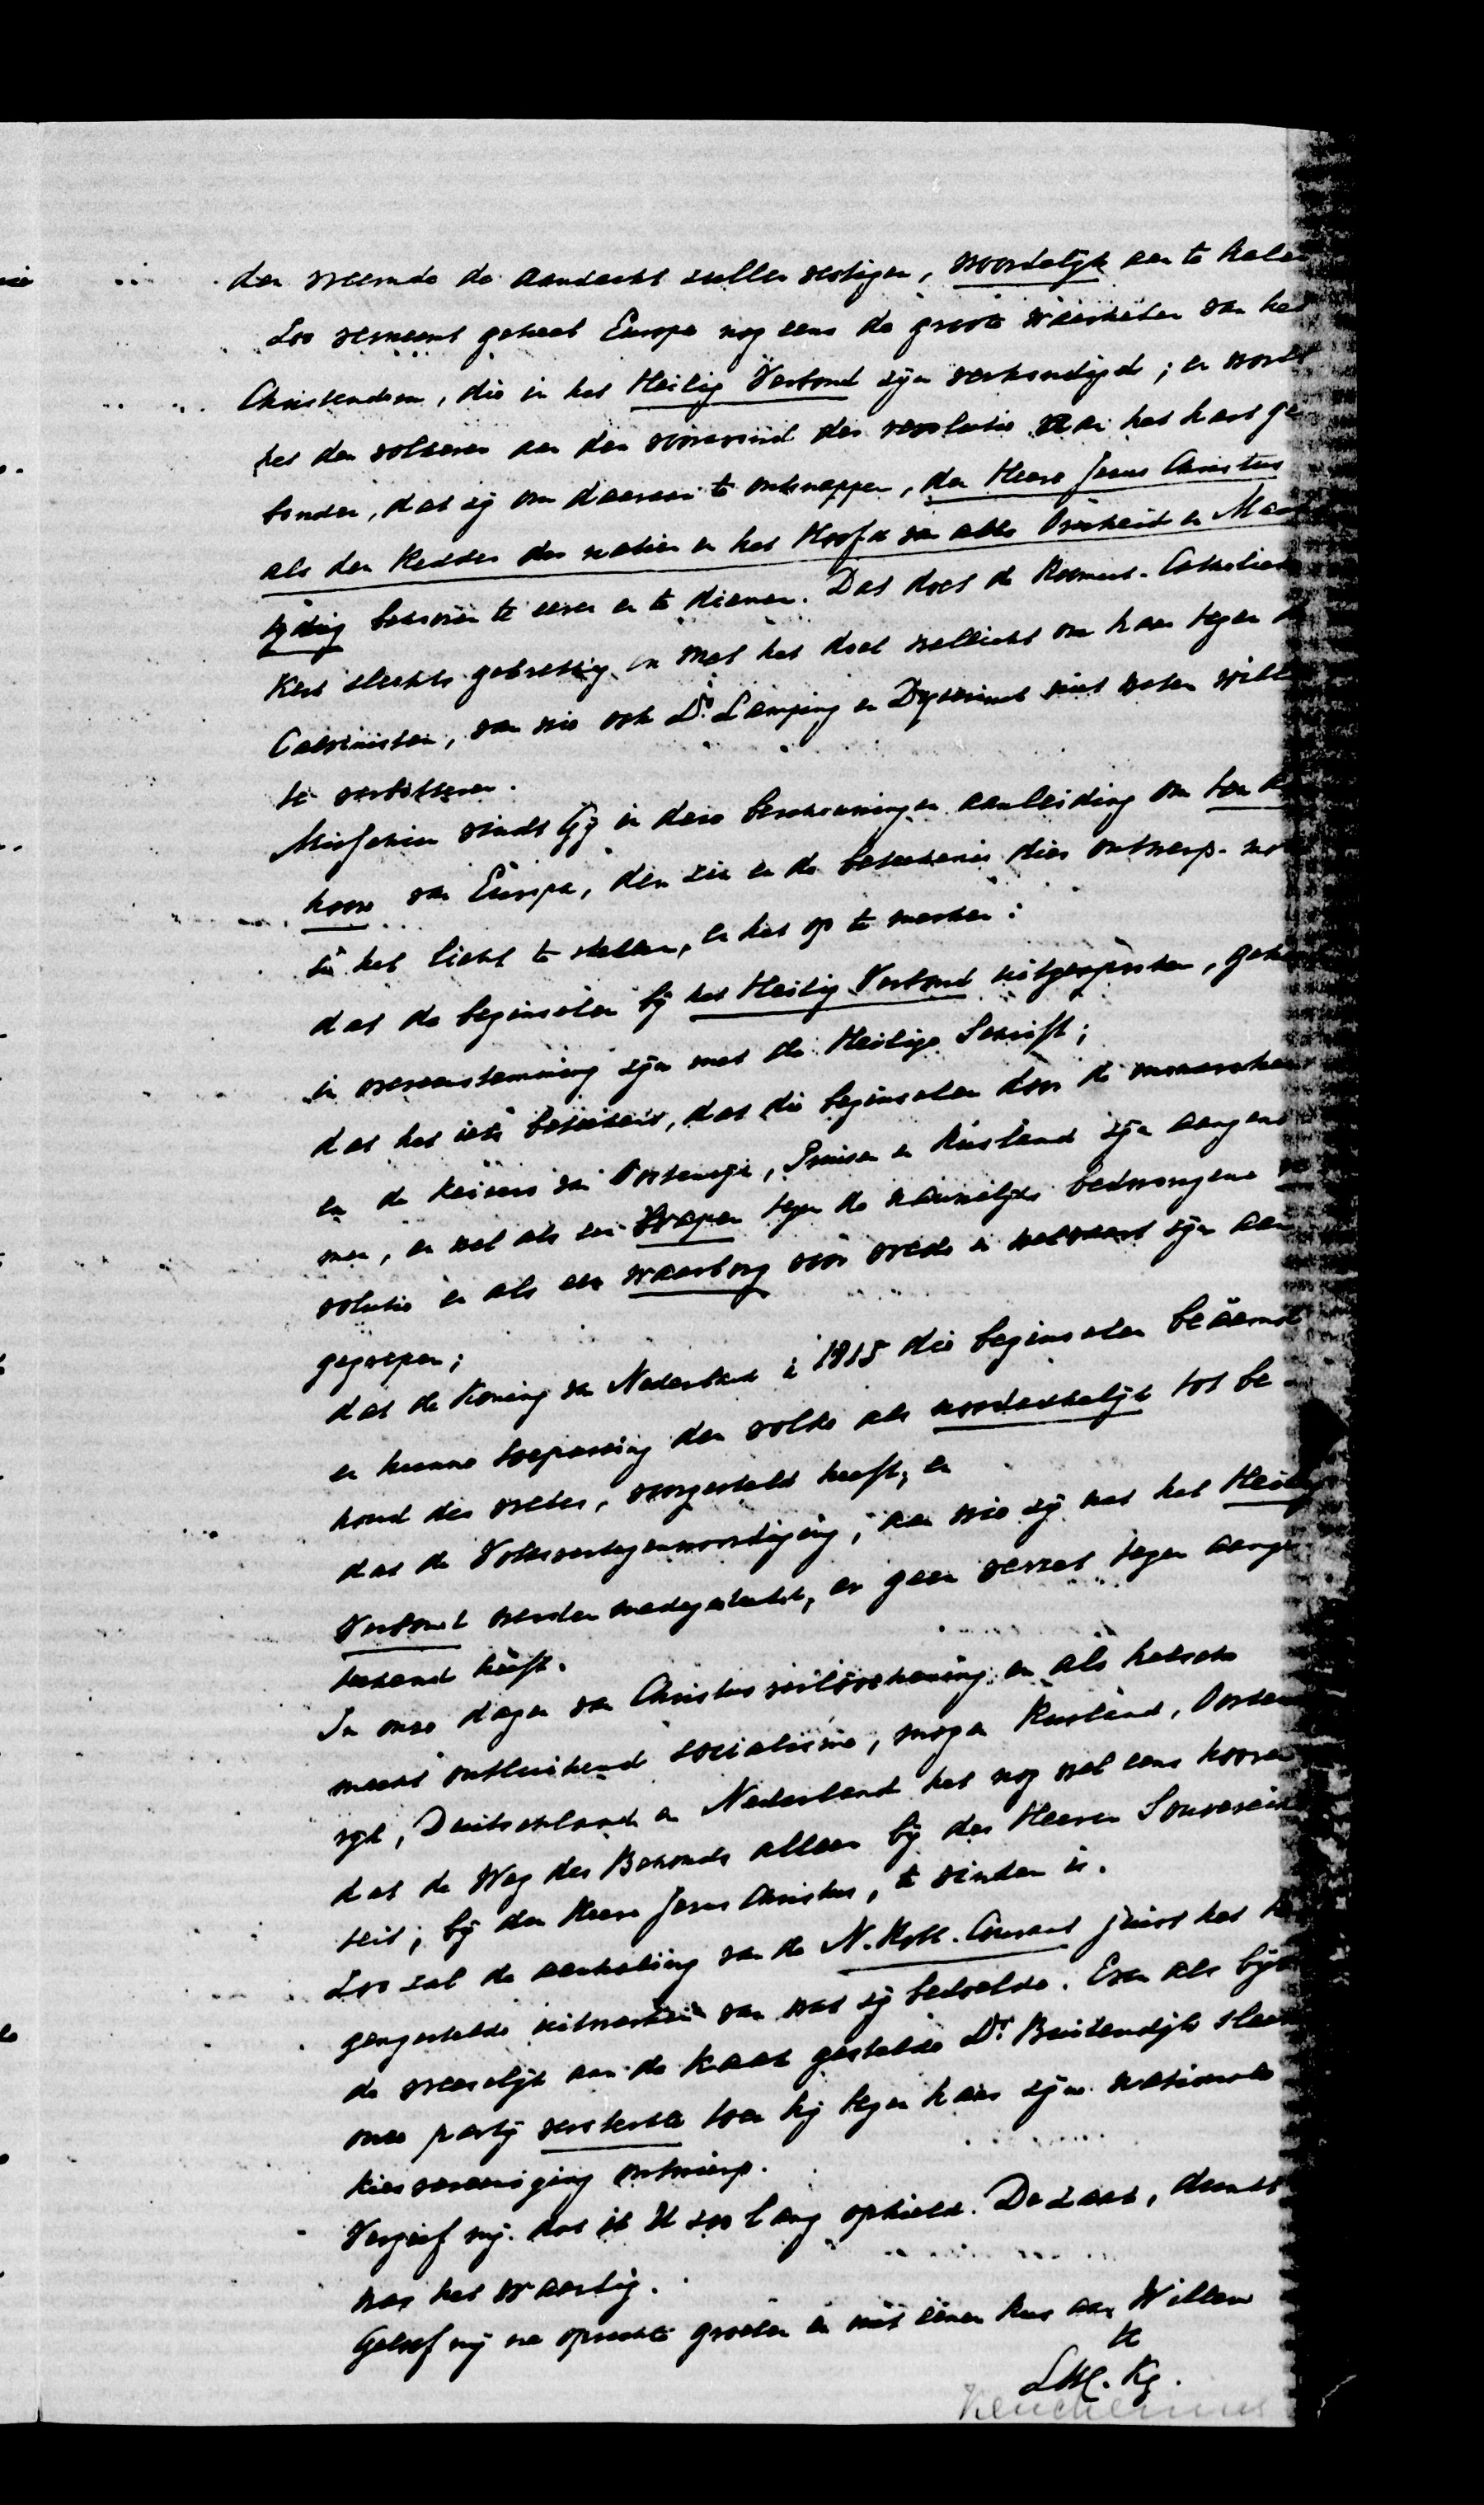 den vreemde de aandacht zullen vestigen, woordelijk aan te halen
Zoo verneemt geheel Europa nog eens de groote waarheden van het
Christendom, die in het Heilig Verbond zijn verkondigd; en wordt
het den volkeren aan den vooravond der revolutie aan het hart ge
bonden, dat zij om daaraan te ontsnappen, den Heere Jezus Christus
als den Redder der natien en het Hoofd van alle Overheid en Mach
tijdig behooren te eeren en te dienen. Dat doet de Roomsch-Catholieke
Kerk slechts gebrekkig en met het doel wellicht om haar tegen de
Calvinisten, van wie ook Ds. Lamping en Dyserinck niet weten will
te verbitteren.
Misschien vindt Gij in deze beschouwingen aanleiding om ten a
hoore van Europa, den zin en de beteekenis dier ontwerp-mo
in het licht te stellen, en het op te merken:
dat de beginselen bij het Heilig Verbond uitgesproken, gehe
in overeenstemming zijn met de Heilige Schrift;
dat het iets beteekent, dat die beginselen door de monarchen
en de Keizers van Oostenrijk, Pruisen en Rusland zijn aangeno
men, en wel als een Wapen tegen de nauwelijks bedwongene re
volutie en als een waarborg voor vrede en welvaart zijn aan
gegrepen;
dat de Koning van Nederland in 1815 die beginselen beäamd
en hunne toepassing den volke als noodzakelijk tot be-
houd des vredes, voorgesteld heeft; en
dat de Volksvertegenwoordiging, aan wie zij met het Heilig
Verbond werden medegedeeld, er geen verzet tegen aange
teekend heeft.
In onze dagen van Christusverloochening en als helsche
macht ontluikend socialisme, mogen Rusland, Oosten
rijk, Duitschland en Nederland het nog wel eens hooren
dat de Weg des Behouds alleen bij des Heeren Souverein
teit, bij den Heere Jezus Christus, te vinden is.
Zoo zal de aanhaling van de N. Rott. Courant juist het te
gengestelde uitwerken van wat zij bedoelde. Even als bijv
de vreeselijk aan de kaak gestelde Dr. Buitendijk slech
onze partij versterkte toen hij tegen haar zijne nationale
kiesvereeniging ontwierp.
Vergeef mij dat ik U zoo lang ophield. De zaak, dunkt
was het waardig.
Geloof mij na oprechte groeten en met eenen kus aan Willem
tt
LWC. Kg.
Keuchenius